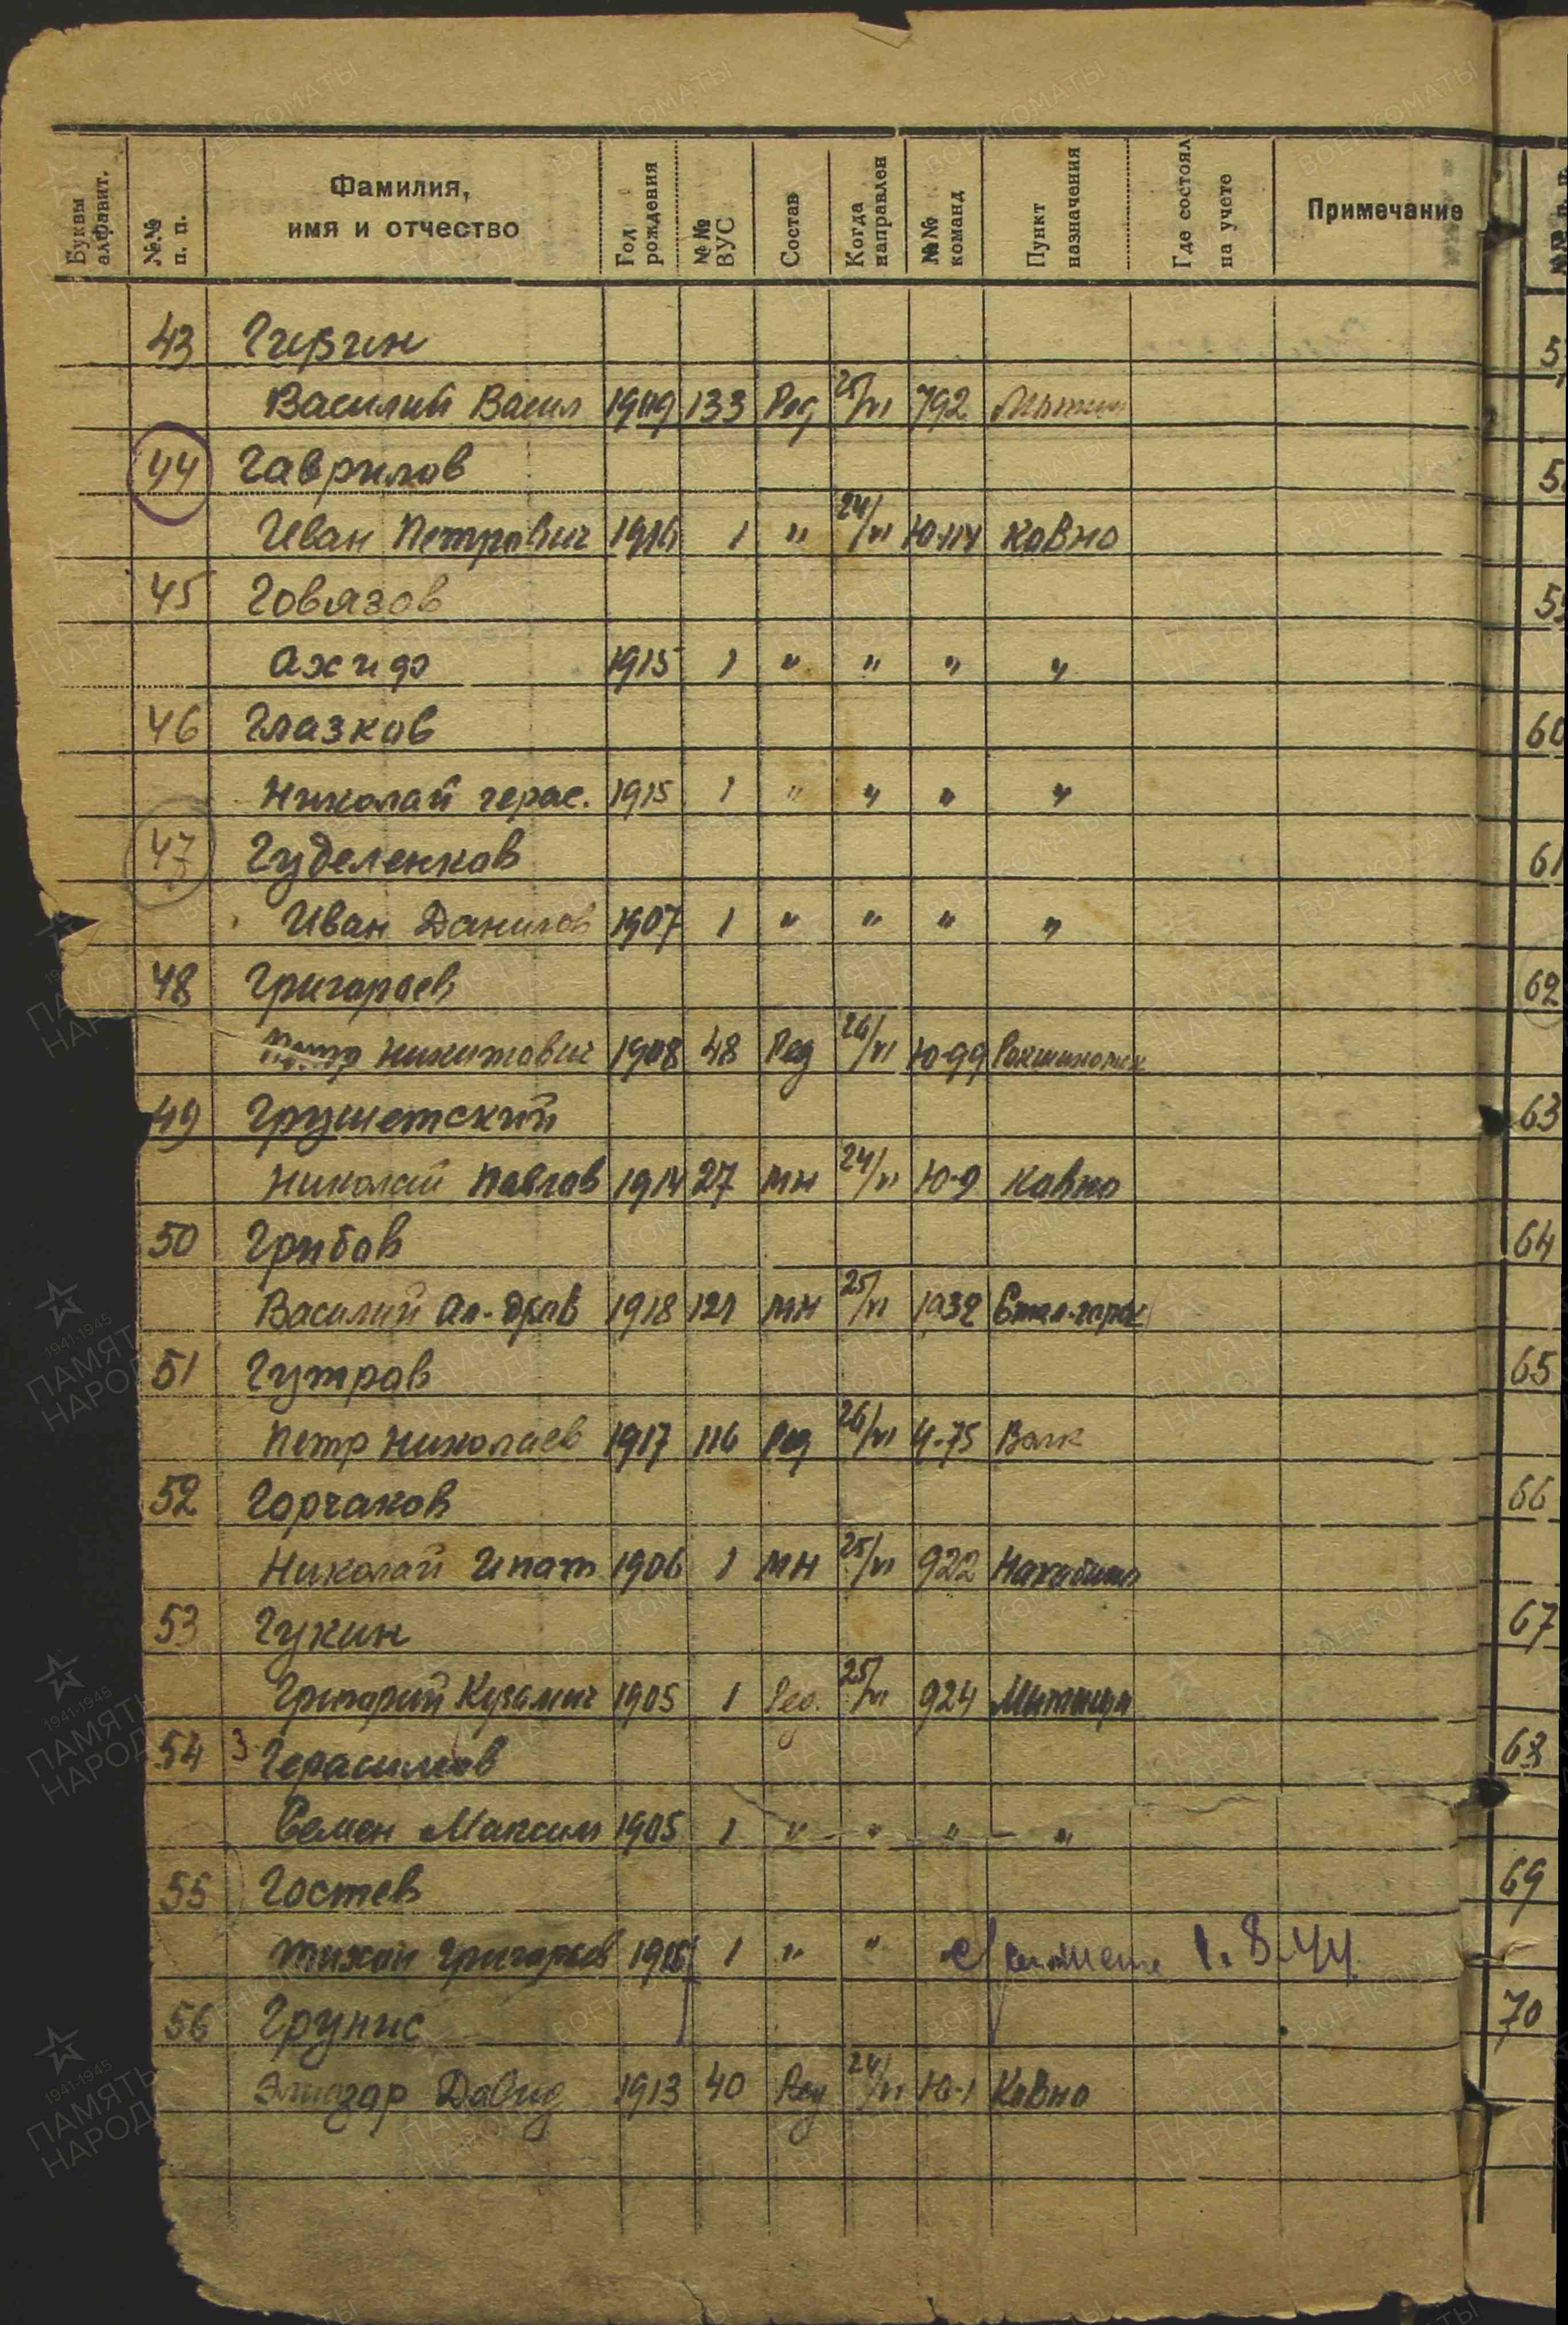 Буквы алфавит.
№№ п. п.
Фамилия,
имя и отчество
Год рождения
№№ ВУС
Состав
Когда направлен
№№ команд
Пункт назначения
Где состоял на учете
Примечание
43 Гирзин
Василий Васил 1909 133 Ряд 25/VI 792
44 Гаврилов
Иван Петрович 1916 1 " 24/VI Ковно
45 Говязов
1915 1 " " " "
46 Глазков
Николай герас. 1915 1 " " " "
47 Гуделенков
Иван Данилов 1907 1 " " " "
48 Григорьев
Петр Никитович 1908 48 Ряд 26/VI Ю-99
49 Грушетский
Николай Павлов 1914 27 МН 24/VI Ю-9 Ковно
50 Грибов
Василий Ал-дров 1918 121 МН 25/VI 1032
51 Гутров
Петр Николаев 1917 116 Ряд 26/VI 4-75 Волк
52 Горчаков
Николай Ипат 1906 1 МН 25/VI 922 Нахабино
53 Гукин
Григорий Кузьмич 1905 1 Ряд. 25/VI 924 Мытищи
54 3 Герасимов
Семен Максим 1905 1 " " " "
55 Гостев
Тихон Григорьев 1 " " 1.8.44.
56 Грунис
Элиазар Давид 1913 40 Ряд 24/VI Ю-1 Ковно
60
61
62
63
64
65
66
67
68
69
70